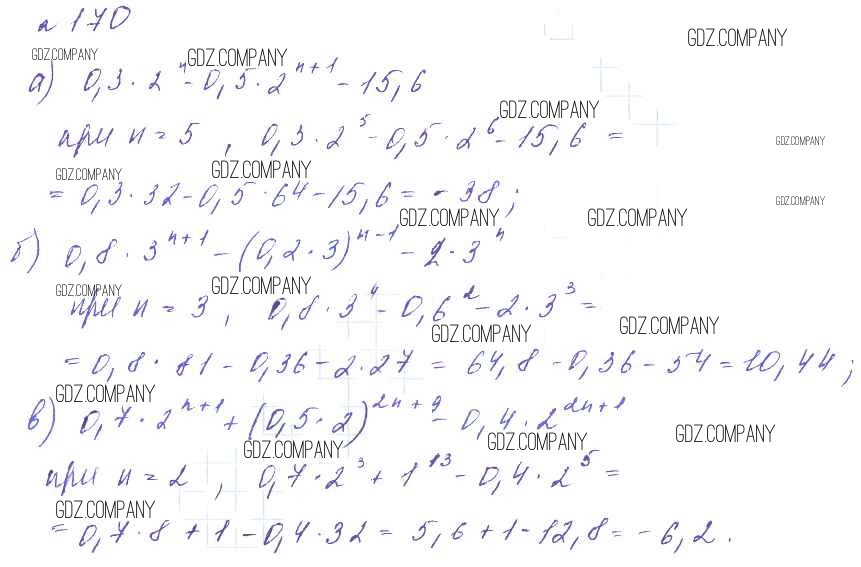 № 170
GDZ.COMPANY GDZ.COMPANY GDZ.COMPANY
а) 0,3 · 2ⁿ - 0,5 · 2ⁿ⁺¹ - 15,6
GDZ.COMPANY
при n = 5 , 0,3 · 2⁵ - 0,5 · 2⁶ - 15,6 =
GDZ.COMPANY
GDZ.COMPANY GDZ.COMPANY
= 0,3 · 32 - 0,5 · 64 - 15,6 = - 38 ;
GDZ.COMPANY
GDZ.COMPANY GDZ.COMPANY
б) 0,8 · 3ⁿ⁺¹ - (0,2 · 3)ⁿ⁻¹ - 2 · 3ⁿ
GDZ.COMPANY GDZ.COMPANY
при n = 3 , 0,8 · 3⁴ - 0,6² - 2 · 3³ =
GDZ.COMPANY GDZ.COMPANY
= 0,8 · 81 - 0,36 - 2 · 27 = 64,8 - 0,36 - 54 = 10,44 ;
GDZ.COMPANY
в) 0,7 · 2ⁿ⁺¹ + (0,5 · 2)²ⁿ⁺⁹ - 0,4 · 2²ⁿ⁺¹
GDZ.COMPANY GDZ.COMPANY GDZ.COMPANY
при n = 2 , 0,7 · 2³ + 1¹³ - 0,4 · 2⁵ =
GDZ.COMPANY
= 0,7 · 8 + 1 - 0,4 · 32 = 5,6 + 1 - 12,8 = - 6,2 .